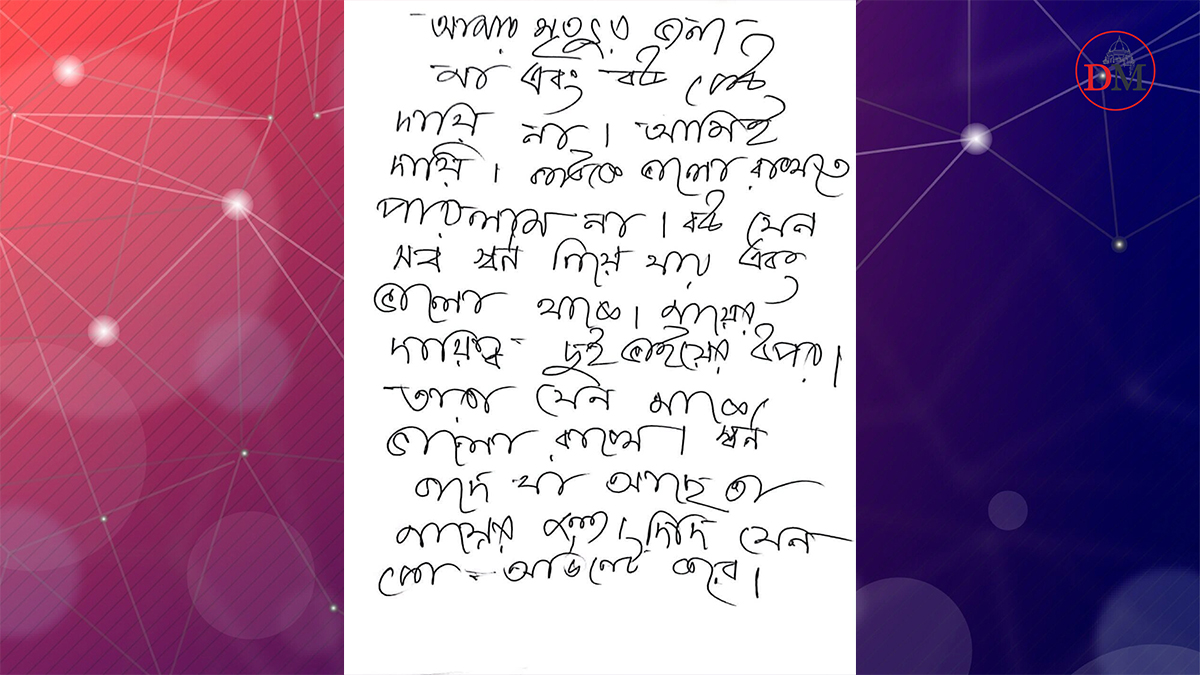 আমার মৃত্যুর জন্য
মা এবং বউ কেউ
দায়ি না। আমিই
দায়ি। কাউকে ভালো রাখতে
পারলাম না। বউ যেন
সব স্বর্ন নিয়ে যায় এবং
ভালো থাকে। মায়ের
দায়িত্ব দুই ভাইয়ের উপর।
তারা যেন মাকে
ভালো রাখে। স্বর্ন
বাদে যা আছে তা
মায়ের জন্য। দিদি যেন
কো-অর্ডিনেট করে।
DM